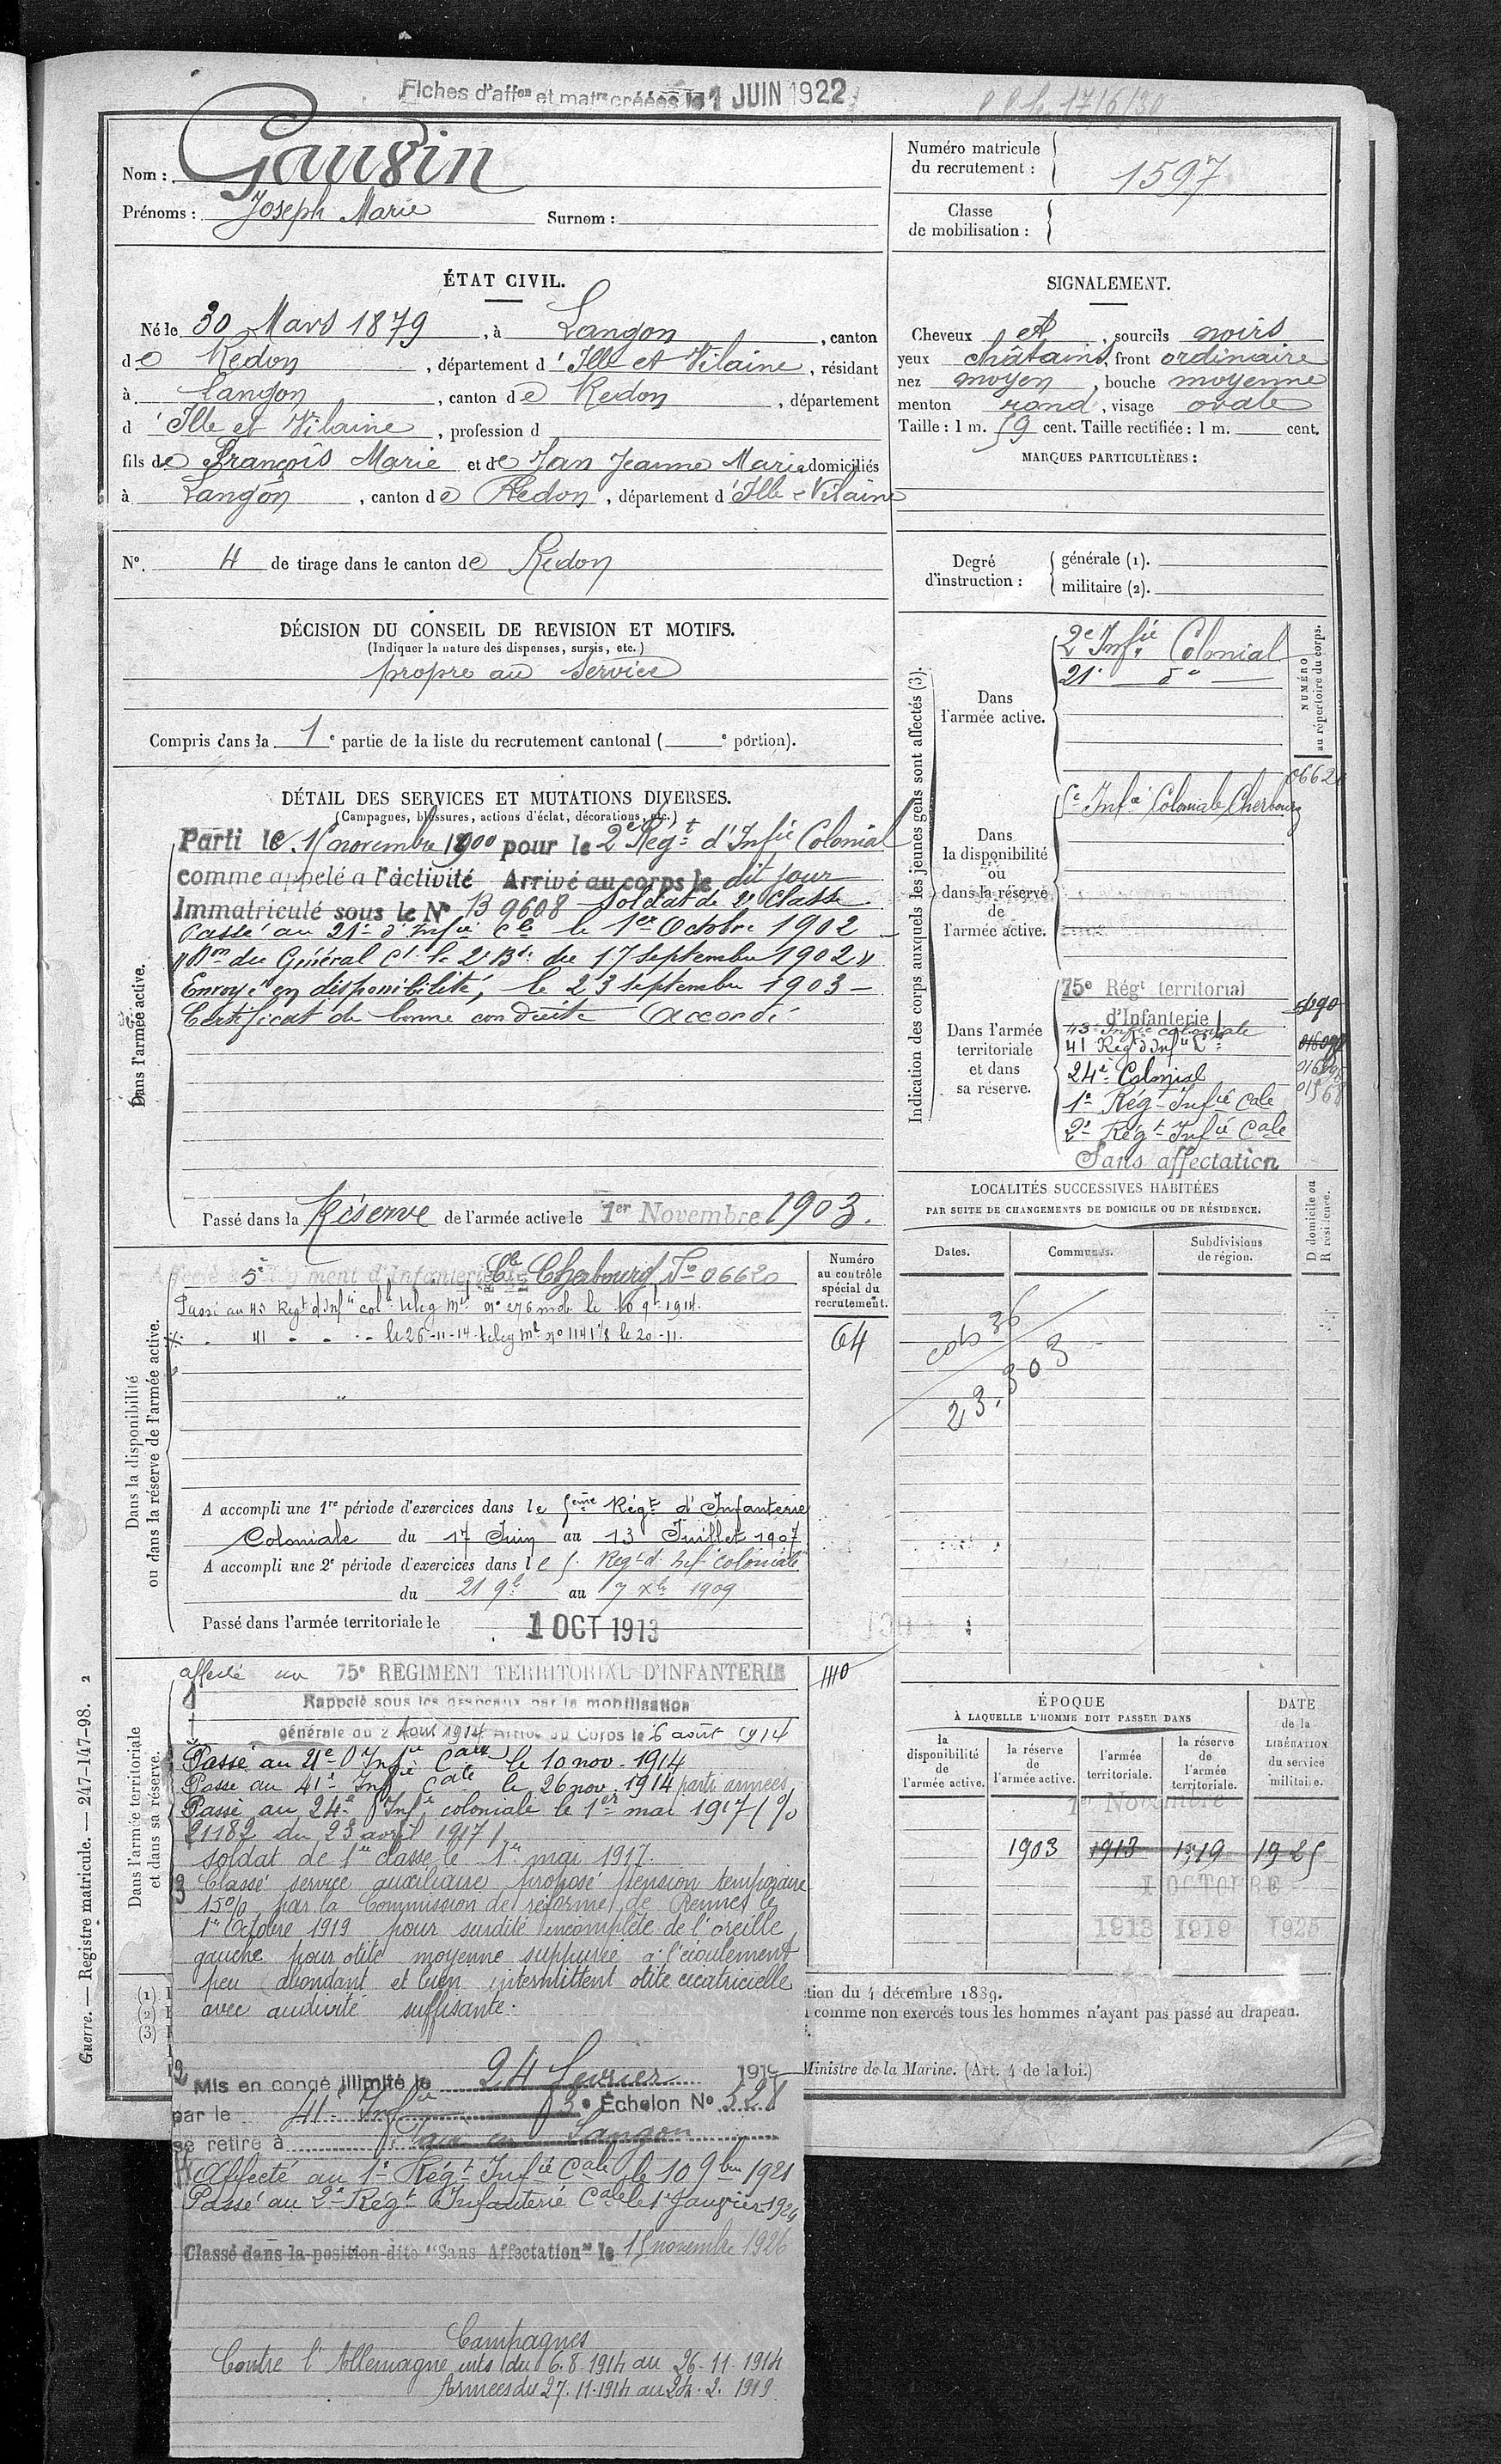 Fiches d'affon et matre créées le 1 JUIN 1922
Nom : Gaudin
Prénoms : Joseph Marie Surnom :
Numéro matricule du recrutement : 1597
Classe de mobilisation :
ÉTAT CIVIL.
Né le 30 Mars 1879, à Langon, canton
de Redon, département d'Ille et Vilaine, résidant
à Langon, canton de Redon, département
d'Ille et Vilaine, profession d
fils de François Marie et de Jan Jeanne Marie domiciliés
à Langon, canton de Redon, département d'Ille-Vilaine
N° 4 de tirage dans le canton de Redon
SIGNALEMENT.
Cheveux et, sourcils noirs
yeux châtains, front ordinaire
nez moyen, bouche moyenne
menton rond, visage ovale
Taille : 1 m. 59 cent. Taille rectifiée : 1 m. cent.
MARQUES PARTICULIÈRES :
Degré d'instruction : générale (1).
militaire (2).
DÉCISION DU CONSEIL DE REVISION ET MOTIFS.
(Indiquer la nature des dispenses, sursis, etc.)
propre au service
Compris dans la 1e partie de la liste du recrutement cantonal ( e portion).
DÉTAIL DES SERVICES ET MUTATIONS DIVERSES.
(Campagnes, blessures, actions d'éclat, décorations, etc.)
Dans l'armée active.
Parti le novembre 1900 pour le 2e Régt d'Infie Colonial
comme appelé a l'activité Arrivé au corps le dit jour
Immatriculé sous le N° 13 9608 Soldat de 2e classe
Passé au 21e d'Infie Cle le 1er Octobre 1902
Don du Général Ct la 2e Bde du 17 septembre 1902
Envoyé en disponibilité, le 23 septembre 1903 —
Certificat de bonne conduite Accordé
Passé dans la Réserve de l'armée active le 1er Novembre 1903.
Indication des corps auxquels les jeunes gens sont affectés (3).
NUMÉRO au répertoire du corps.
Dans l'armée active.
2e Infie Colonial
21e do
06620
Dans la disponibilité ou dans la réserve de l'armée active.
5e Infie Coloniale Cherbourg
Dans l'armée territoriale et dans sa réserve.
75e Régt territorial
d'Infanterie
43e Infie coloniale
41 Regt d'Infie Cle
24e Colonial
1e Régt Infie Cale
2e Régt Infie Cale
Sans affectation
LOCALITÉS SUCCESSIVES HABITÉES
PAR SUITE DE CHANGEMENTS DE DOMICILE OU DE RÉSIDENCE.
D domicile ou R résidence.
Dates. Communes. Subdivisions de région.
23. 303
Dans la disponibilité ou dans la réserve de l'armée active.
Numéro au contrôle spécial du recrutement.
64
5e Régiment d'Infanterie Cle Cherbourg No 06620
Passé au 43 Regt d'Infie cole teleg Mel n° 276 mob le 10 9bt 1914.
41 le 26-11-14. teleg Mel n° 11411/8 le 20-11.
A accompli une 1re période d'exercices dans le 5eme Régt d'Infanterie
Coloniale du 17 Juin au 13 Juillet 1907
A accompli une 2e période d'exercices dans le 5e Regt d'Inf coloniale
du 21 9bre au 7 Xbre 1909
Passé dans l'armée territoriale le 1 OCT 1913
Dans l'armée territoriale et dans sa réserve.
affecté au 75e REGIMENT TERRITORIAL D'INFANTERIE
1110
Rappelé sous les drapeaux par la mobilisation
générale du 2 Aout 1914 Arrivé au Corps le 6 août 1914
Passé au 21e d'Infie Cale le 10 nov. 1914
Passé au 41e Infie Cale le 26 nov. 1914 parti armées
Passé au 24e Infie coloniale le 1er mai 1917
21182 du 23 avril 1917
soldat de 1re classe le 1er mai 1917.
Classé service auxiliaire proposé pension temporaire
15% par la Commission de réforme de Rennes le
1er Octobre 1919 pour surdité incomplète de l'oreille
gauche pour otite moyenne suppurée à l'écoulement
peu abondant et bien intermittent otite cicatricielle
avec audivité suffisante.
Mis en congé illimité le 24 fevrier 1919
par le 41e Infie 3e Échelon N° 528
se retire à en Langon
Affecté au 1e Régt Infie Cale le 10 9bre 1921
Passé au 2e Régt Infanterie Cale le 1e Janvier 1924
Classé dans la position dite "Sans Affectation" le 15 novembre 1926
Campagnes
Contre l'Allemagne intr du 6.8.1914 au 26.11.1914
Armées du 27.11.1914 au 24.2.1919
ÉPOQUE
À LAQUELLE L'HOMME DOIT PASSER DANS
DATE de la LIBÉRATION du service militaire.
la disponibilité de l'armée active. la réserve de l'armée active. l'armée territoriale. la réserve de l'armée territoriale.
1er Novembre
1903 1913 1919 1925
1 OCTOBRE
1913 1919 1925
tion du 4 décembre 1889.
comme non exercés tous les hommes n'ayant pas passé au drapeau.
Ministre de la Marine. (Art. 4 de la loi.)
Guerre. — Registre matricule. — 247-147-98. 2